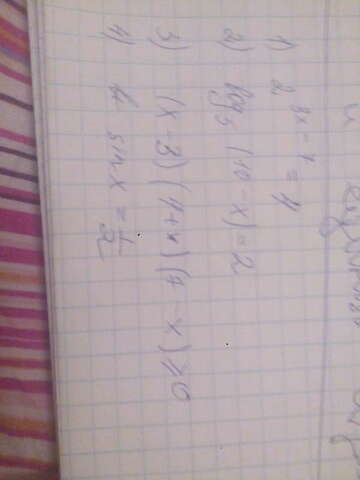 1) 2^(8x - 1) = 4
2) log₃ (10 - x) = 2
3) (x - 3)(4 + x)(7 - x) ≥ 0
4) sin x = 1/2